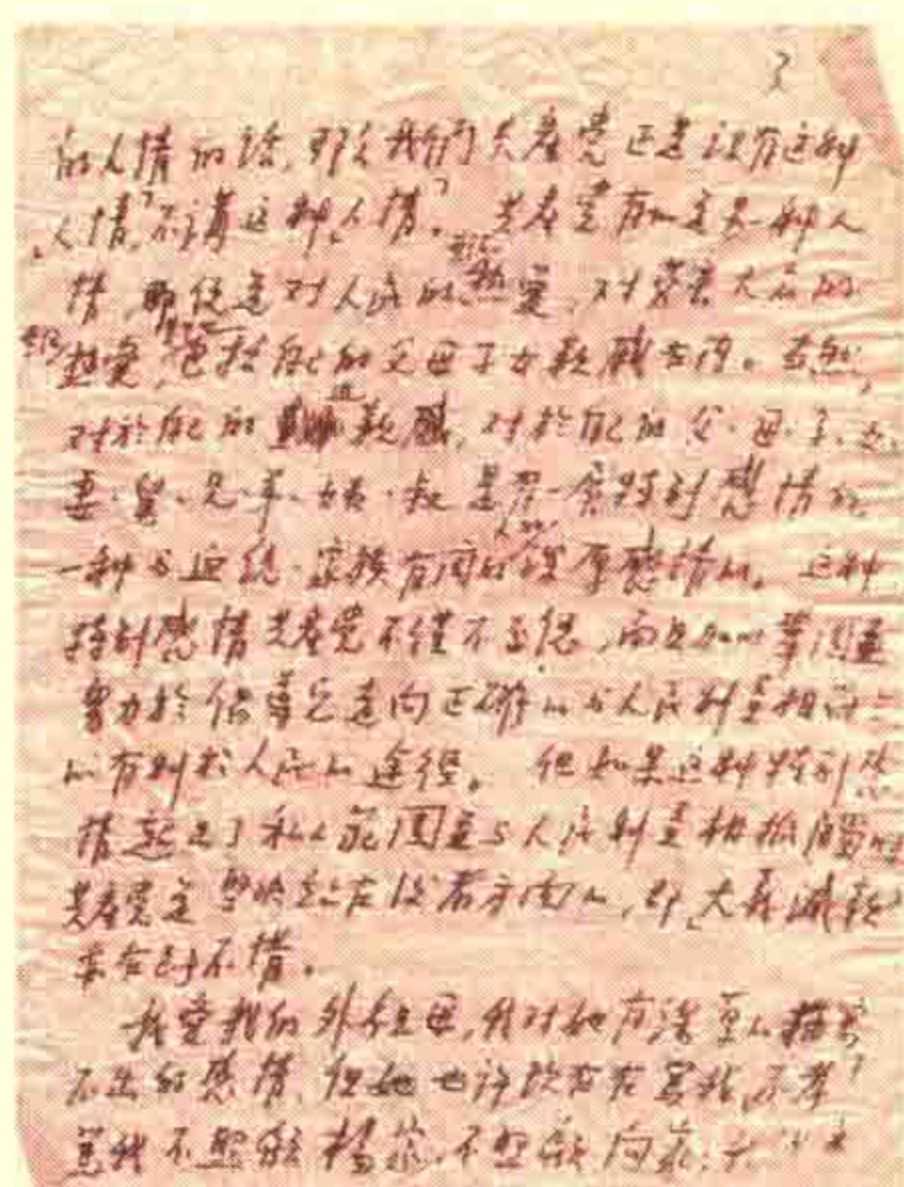 3
的人情的话，那么我们共产党正是没有这种
“人情”，不讲这种“人情”。共产党有的是另一种人
情，那便是对人民的无限热爱，对劳苦大众的
无限热爱，包括自己的父母子女亲戚在内。当然，
对于自己的近亲戚，对于自己的父、母、子、女、
妻、舅、兄、弟、姨、叔是有一层特别感情的，
一种与血统、家族有关的人的深厚感情的。这种
特别感情共产党不仅不否认，而且加以巩固并
努力于倡导它走向正确的与人民利益相符合
的有利于人民的途径。但如果这种特别感
情超出了私人范围并与人民利益相抵触时
共产党是坚决站在后者方面的，即“大义灭亲”
亦在所不惜。
我爱我的外祖母，我对她有深厚的描写
不出的感情，但她也许现在在骂我“不孝”
骂我不照顾杨家，不照顾向家；